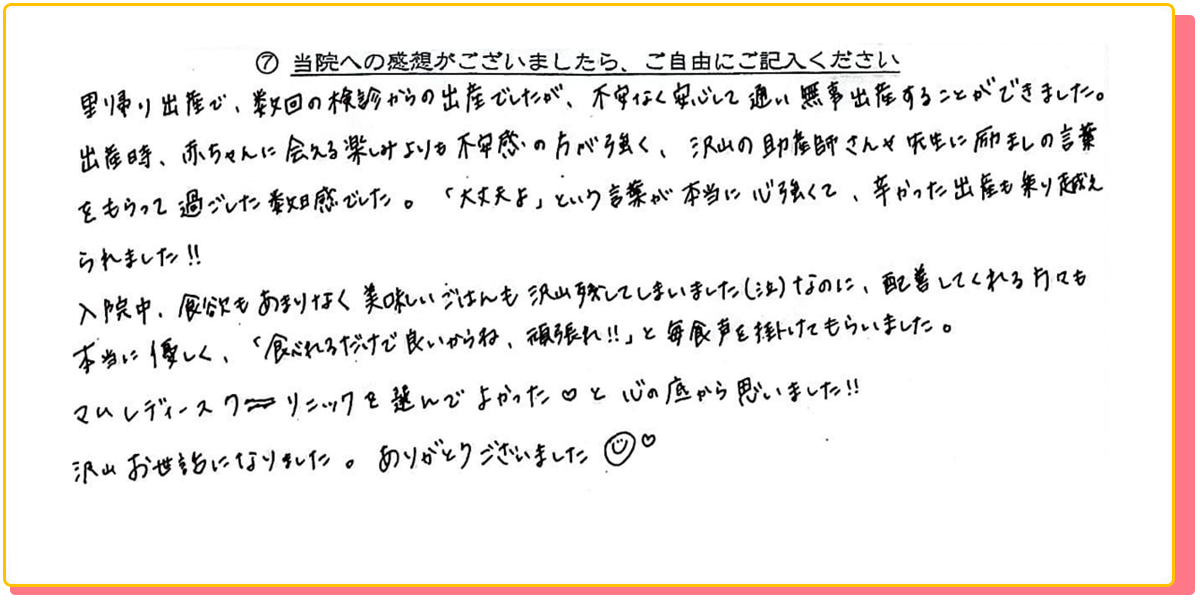 ⑦ 当院への感想がございましたら、ご自由にご記入ください
里帰り出産で、数回の検診からの出産でしたが、不安なく安心して通い無事出産することができました。
出産時、赤ちゃんに会える楽しみよりも不安感の方が強く、沢山の助産師さんや先生に励ましの言葉
をもらって過ごした数日感でした。「大丈夫よ」という言葉が本当に心強くて、辛かった出産も乗り越え
られました!!
入院中、食欲もあまりなく美味しいごはんも沢山残してしまいました(泣)なのに、配善してくれる方々も
本当に優しく、「食べれるだけで良いからね、頑張れ!!」と毎食声を掛けてもらいました。
マムレディースクリニックを選んでよかった♡と心の底から思いました!!
沢山お世話になりました。ありがとうございました☺♡